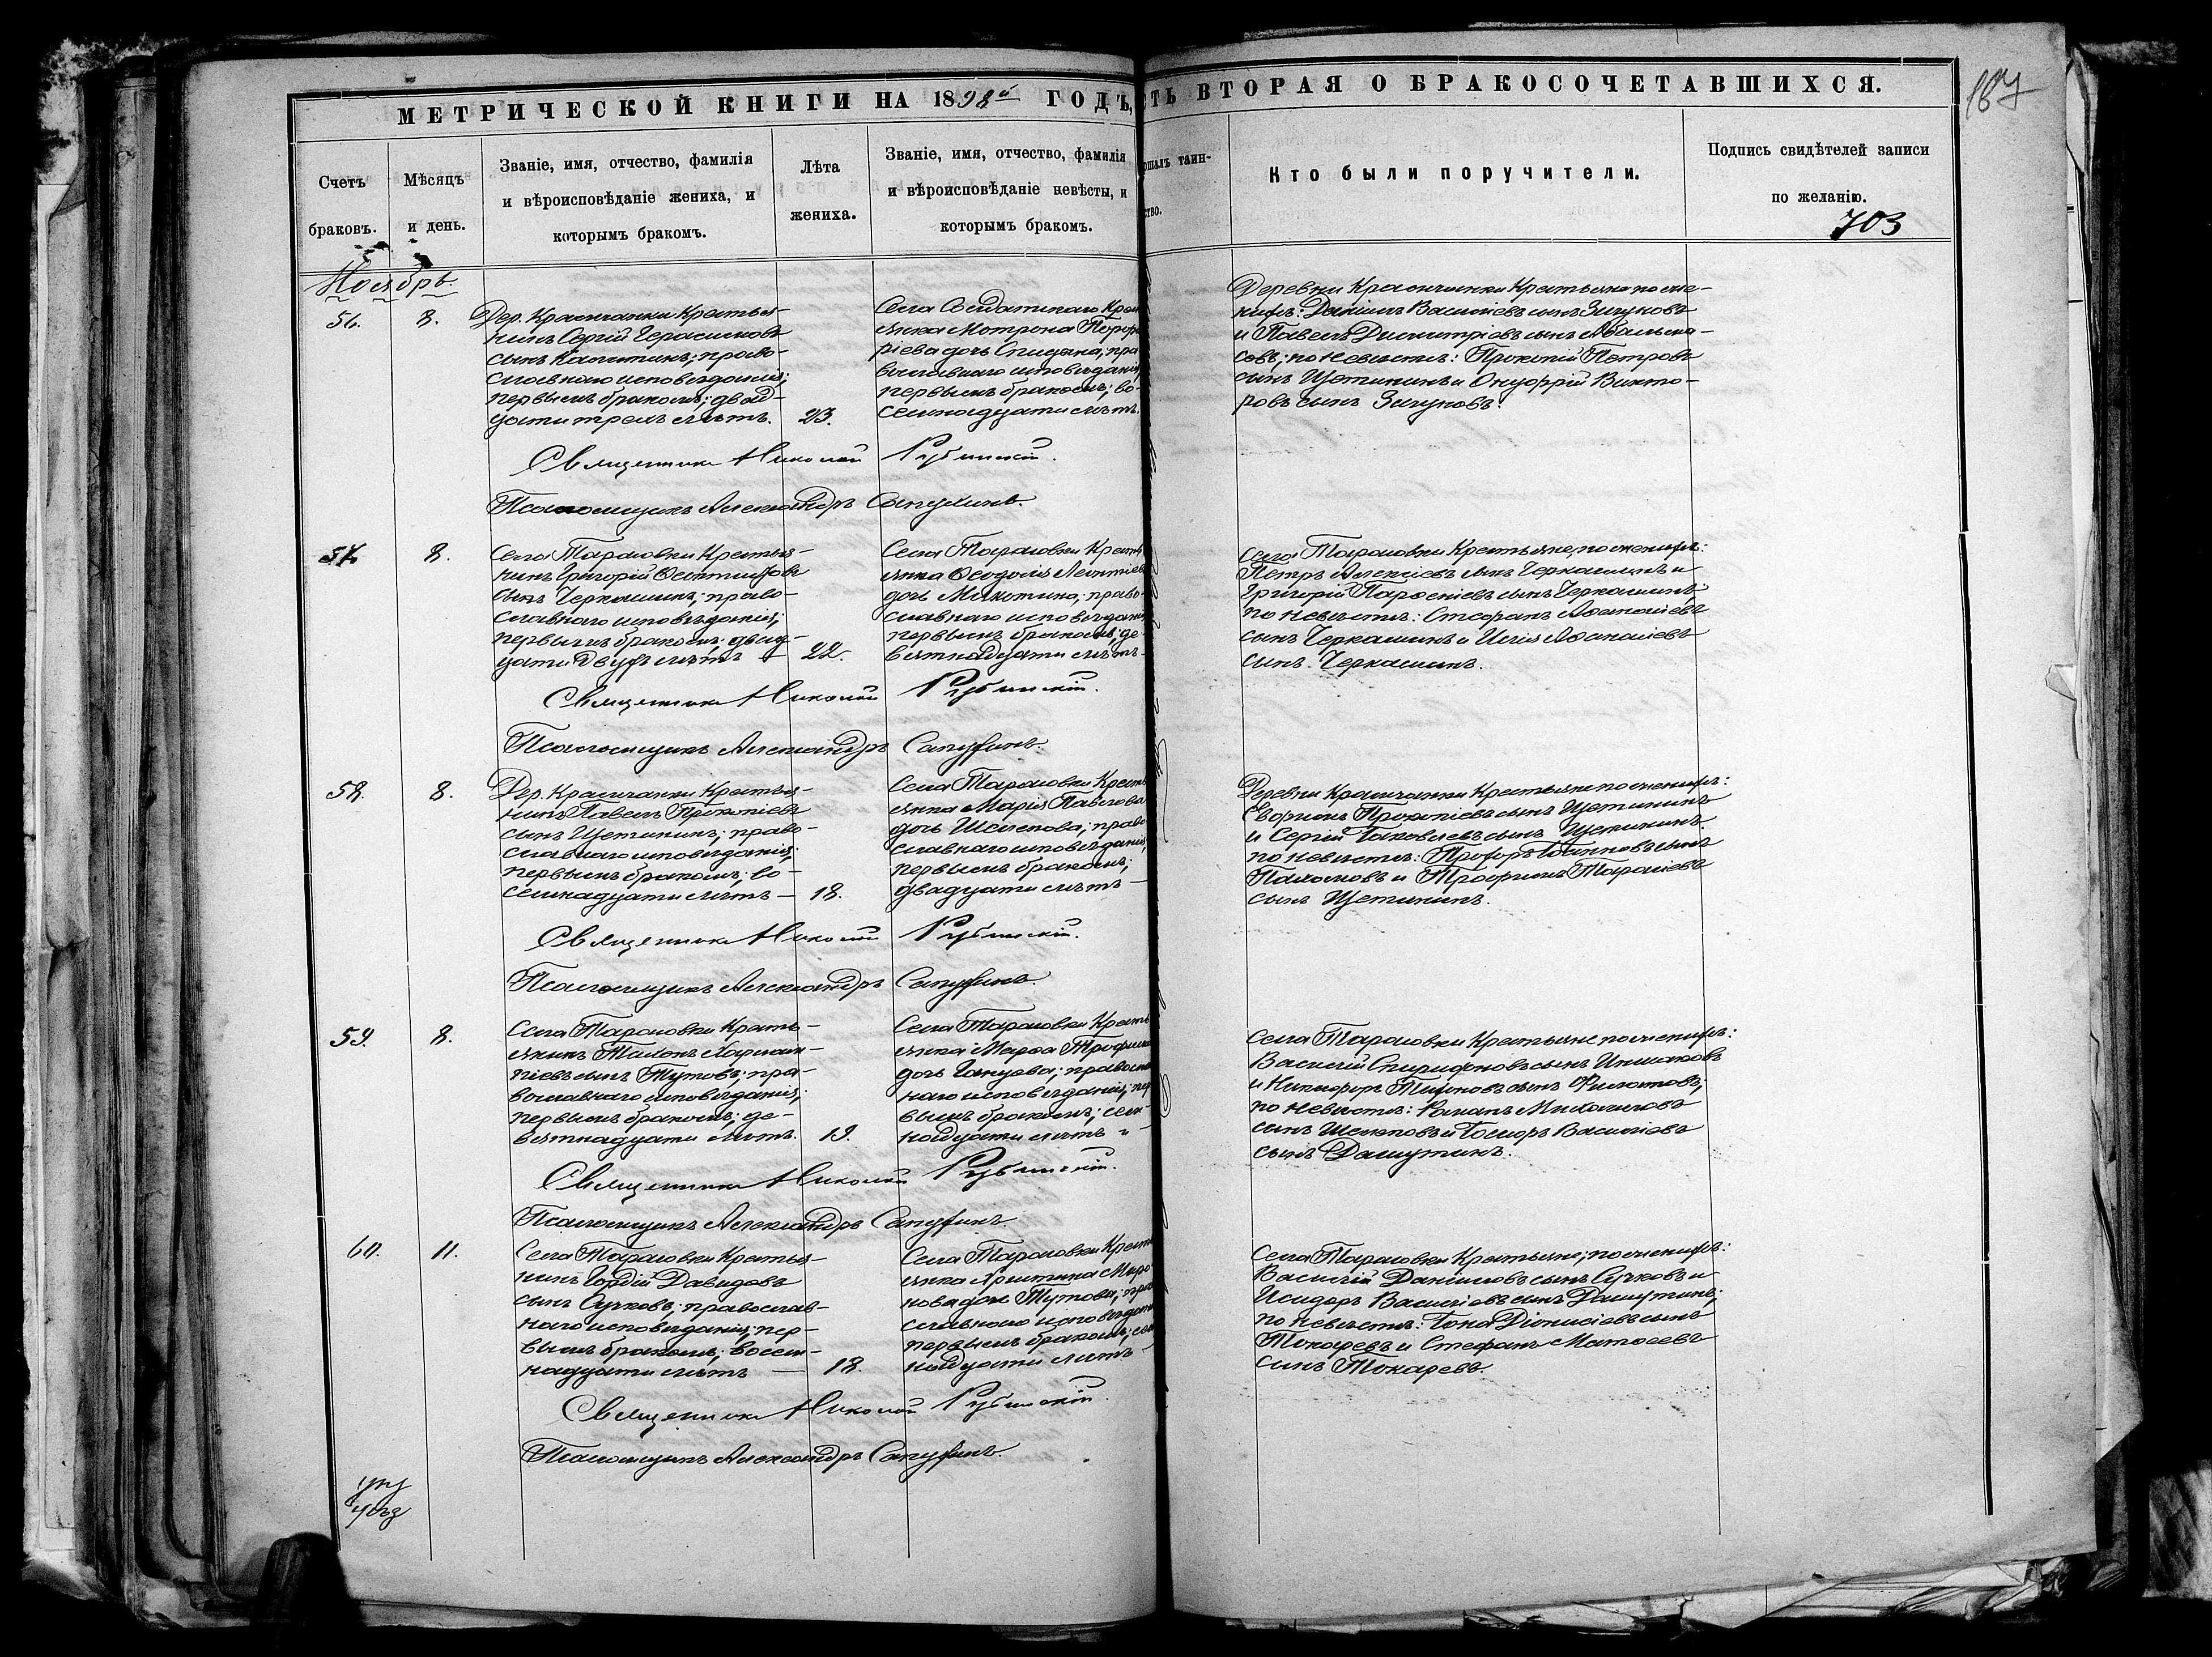 МЕТРИЧЕСКОЙ КНИГИ НА 1898й ГОДЪ,
СТЬ ВТОРАЯ О БРАКОСОЧЕТАВШИХСЯ.
187
Счетъ браковъ.
Мѣсяцъ и день.
Званіе, имя, отчество, фамилія
и вѣроисповѣданіе жениха, и
которымъ бракомъ.
Лѣта
жениха.
Званіе, имя, отчество, фамилія
и вѣроисповѣданіе невѣсты, и
которымъ бракомъ.
ршалъ таин-
ство.
Кто были поручители.
Подпись свидѣтелей записи
по желанію.
703
Ноябрь.
56. 8.
Дер. Краснянки Крестья-
нинъ Сергій Герасимовъ
сынъ Капитинъ; право-
славнаго исповѣданія;
первымъ бракомъ; двад-
цати трехъ лѣтъ. 23.
Села Солдатскаго Крес
янка Мотрона Порфи
ріева дочь Спицына; пра
вославнаго исповѣданія;
первымъ бракомъ; во-
семнадцати лѣтъ.
Деревни Краснянки Крестьяне по же-
нихѣ: Даніилъ Васильевъ сынъ Зигуновъ
и Павелъ Димитріевъ сынъ
по невѣстѣ: Прокопій Петровъ
сынъ Щетининъ и Онуфрій Викто-
ровъ сынъ Зигуновъ.
Священникъ Николай Рубинскій.
Псаломщикъ Александръ Сапухинъ.
57. 8.
Села Тарасовки Крестья-
нинъ Григорій Феоктистовъ
сынъ Черкашинъ; право-
славнаго исповѣданія;
первымъ бракомъ; двад-
цати двухъ лѣтъ 22.
Села Тарасовки Кресть
янка Феодосія Леонтіев
дочь Мякотина; право-
славнаго исповѣдані
первымъ бракомъ; де-
вятнадцати лѣтъ-
Села Тарасовки Крестьяне, по женихѣ:
Петръ Алексіевъ сынъ Черкашинъ и
Григорій Парфеніевъ сынъ Черкашинъ;
по невѣстѣ: Стефанъ Афанасіевъ
сынъ Черкашинъ и Илія Афанасіевъ
сынъ Черкашинъ.
Священникъ Николай Рубинскій.
Псаломщикъ Александръ Сапухинъ.
58. 8.
Дер. Краснянки Крестья-
нинъ Павелъ Прокопіевъ
сынъ Щетининъ; право-
славнаго исповѣданія;
первымъ бракомъ; во-
семнадцати лѣтъ — 18.
Села Тарасовки Кресть
янка Марія Павлова
дочь Шелепова; право
славнаго исповѣданія;
первымъ бракомъ;
двадцати лѣтъ —
Деревни Краснянки Крестьяне по женихѣ:
Евфимъ Прокопіевъ сынъ Щетининъ
и Сергій Іаковлевъ сынъ Щетининъ.
по невѣстѣ: Прохоръ Іоанновъ сынъ
Пахомовъ и Трофимъ Тарасіевъ
сынъ Щетининъ.
Священникъ Николай Рубинскій.
Псаломщикъ Александръ Сапухинъ.
59. 8.
Села Тарасовки Кресть-
янинъ Тихонъ Харлам-
піевъ сынъ Тутовъ; пра-
вославнаго исповѣданія;
первымъ бракомъ; де-
вятнадцати лѣтъ. 19.
Села Тарасовки Кресть
янка Марфа Трофим
дочь правосла
наго исповѣданія; пер
вымъ бракомъ; сем-
надцати лѣтъ
Села Тарасовки Крестьяне по женихѣ:
Василій Спиридоновъ сынъ
и Никифоръ Тихоновъ сынъ Филатовъ;
по невѣстѣ: Романъ Михаиловъ
сынъ Шелеповъ и Исидоръ Васильевъ
сынъ Дашутинъ.
Священникъ Николай Рубинскій.
Псаломщикъ Александръ Сапухинъ
60. 11.
Села Тарасовки Крестья-
нинъ Гордій Давидовъ
сынъ Сучковъ; православ-
наго исповѣданія; пер-
вымъ бракомъ; восем-
надцати лѣтъ — 18.
Села Тарасовки Кресть
янка Христина Миро-
нова дочь Тутова; пра
славнаго исповѣдан
первымъ бракомъ; сем
надцати лѣтъ-
Села Тарасовки Крестьяне; по женихѣ:
Василій Даніиловъ сынъ Сучковъ и
Исидоръ Васильевъ сынъ Дашутинъ;
по невѣстѣ: Іона Діонисіевъ сынъ
Токаревъ и Стефанъ Матфеевъ
сынъ Токаревъ.
Священникъ Николай Рубинскій.
Псаломщикъ Александръ Сапухинъ.